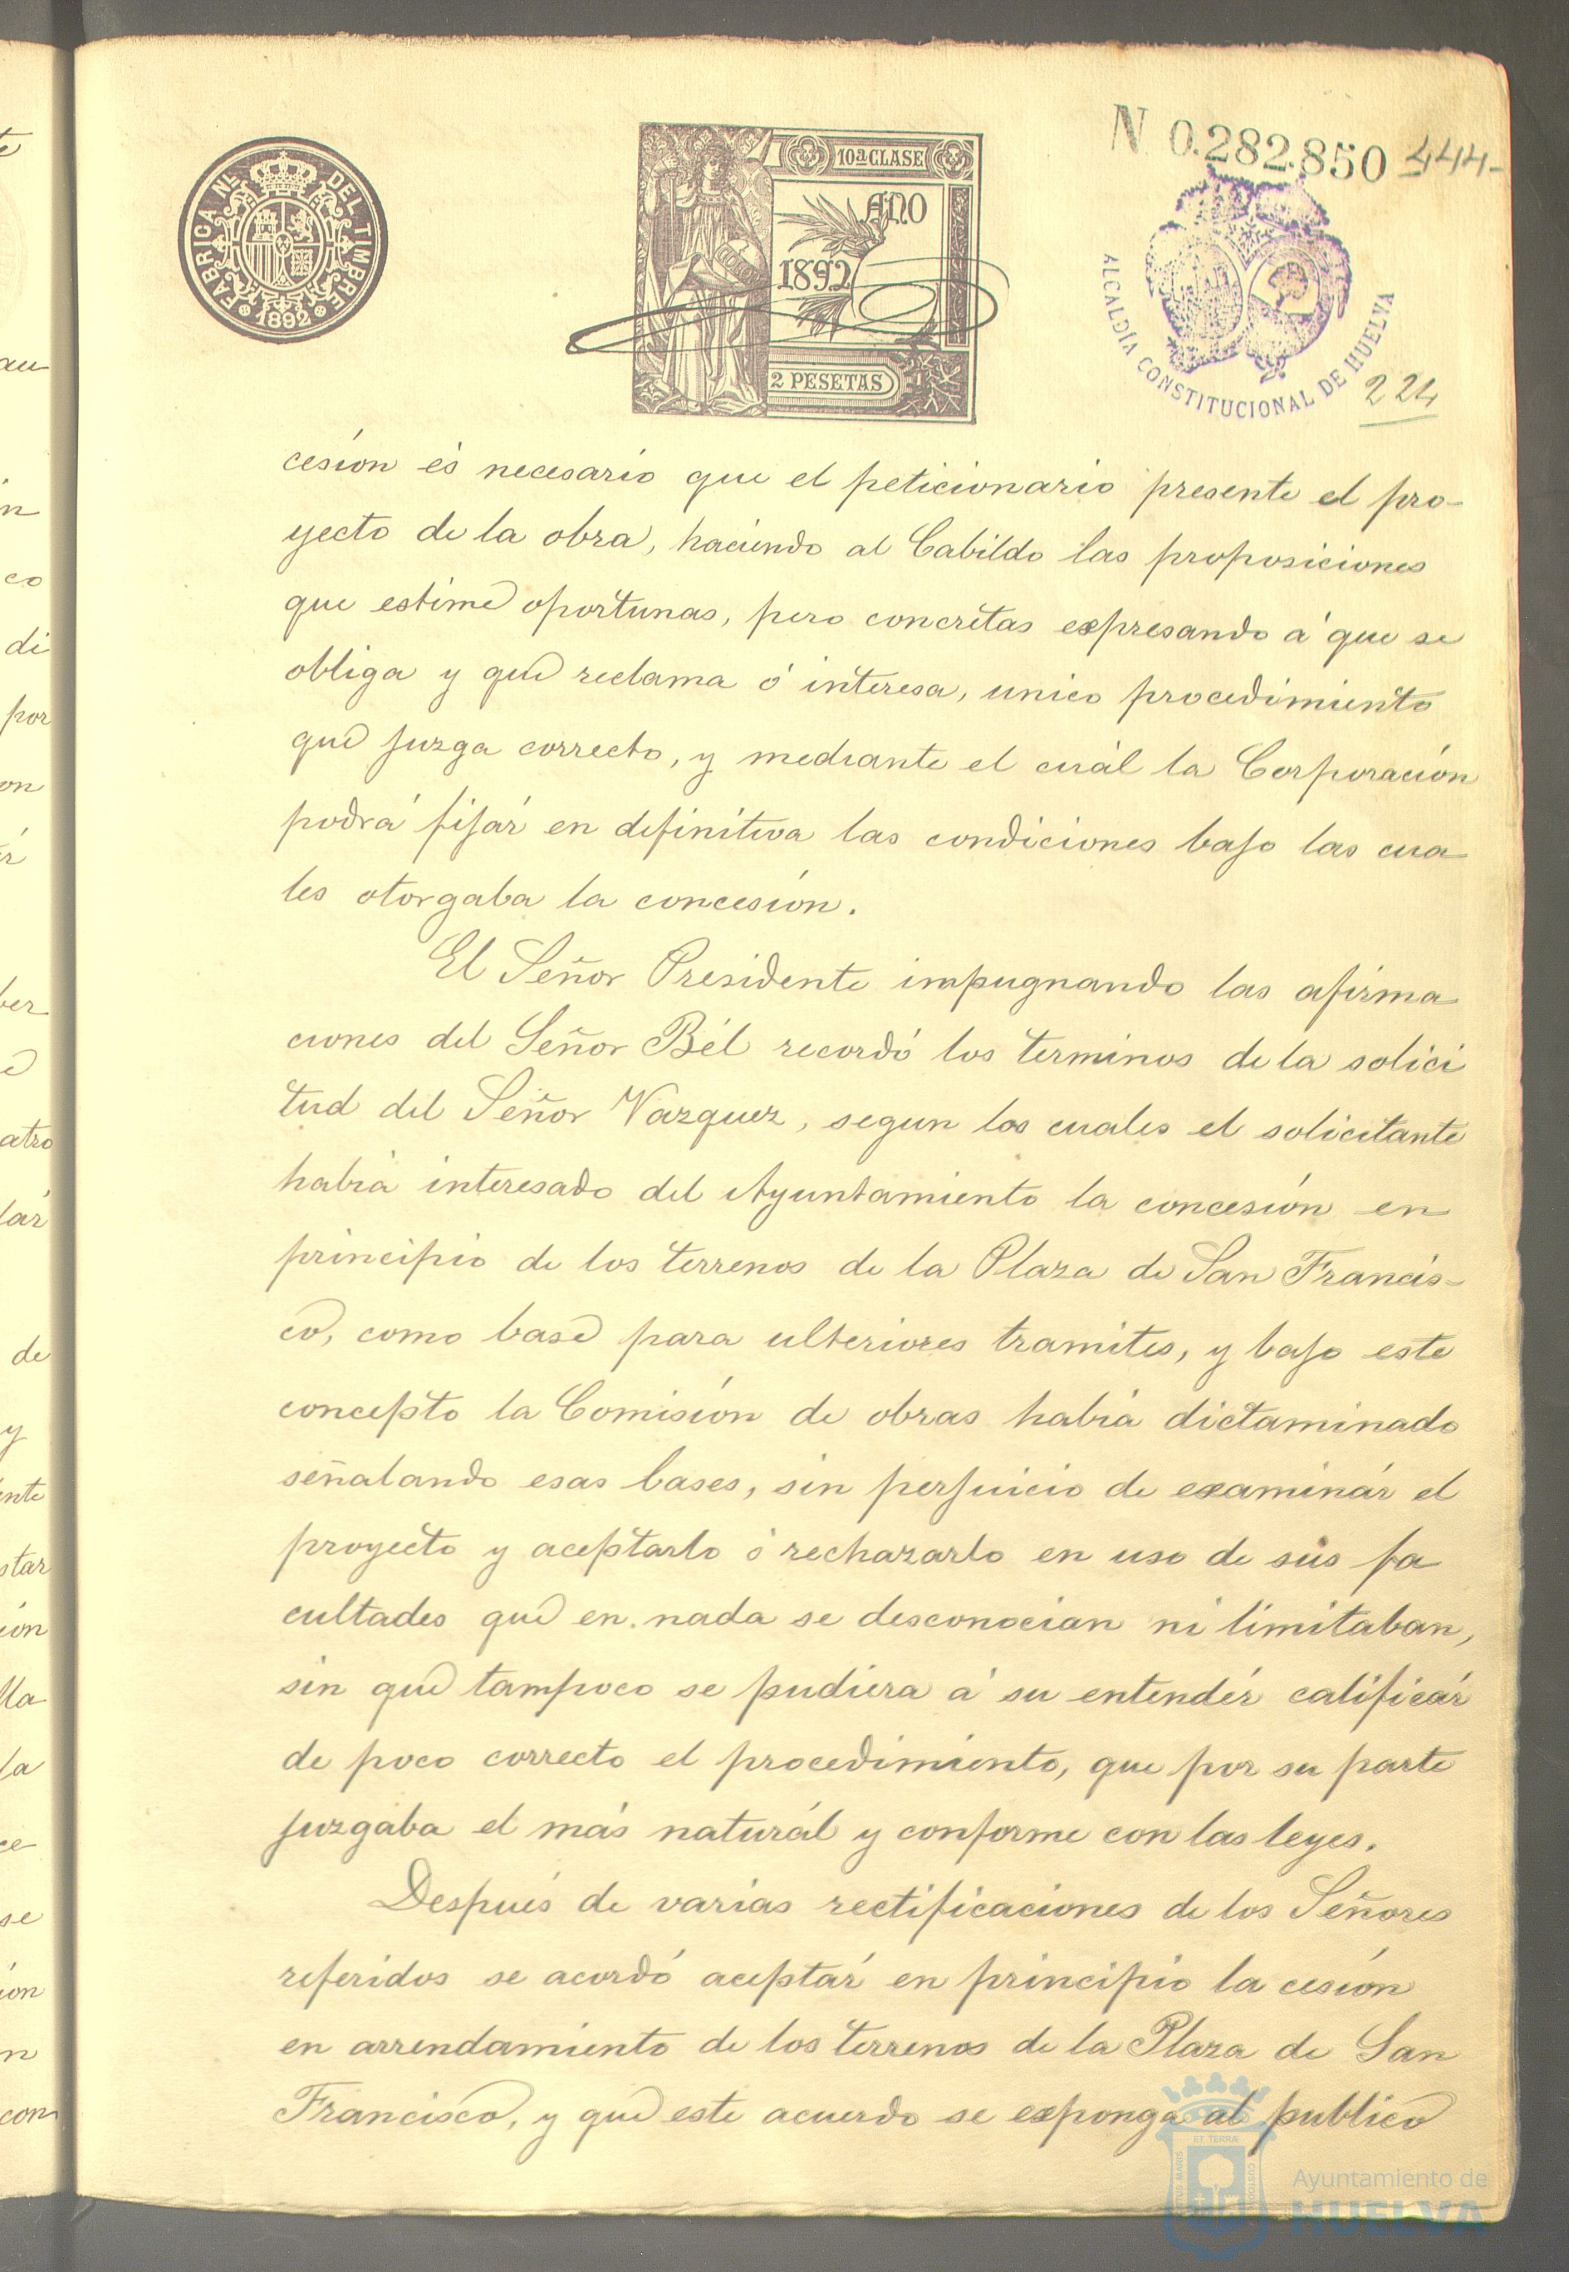 N 0.282.850 444-
FABRICA NL. DEL TIMBRE
1892
10ª CLASE
AÑO
1892
2 PESETAS
ALCALDÍA CONSTITUCIONAL DE HUELVA
224
cesión és necesario que el peticionario presente el pro-
yecto de la obra, haciendo al Cabildo las proposiciones
que estime oportunas, pero concretas expresando á que se
obliga y que reclama ó interesa, unico procedimiento
que juzga correcto, y mediante el cuál la Corporación
podrá fijár en definitiva las condiciones bajo las cua
les otorgaba la concesión.
El Señor Presidente impugnando las afirma
ciones del Señor Bél recordó los terminos de la solici
tud del Señor Vazquez, segun los cuales el solicitante
habiá interesado del Ayuntamiento la concesión en
principio de los terrenos de la Plaza de San Francis-
co, como base para ulteriores tramites, y bajo este
concepto la Comisión de obras habiá dictaminado
señalando esas bases, sin perjuicio de examinár el
proyecto y aceptarlo ó rechazarlo en uso de sus fa
cultades que en nada se desconocian ni limitaban,
sin que tampoco se pudiera á su entendér calificár
de poco correcto el procedimiento, que por su parte
juzgaba el más naturál y conforme con las leyes.
Después de varias rectificaciones de los Señores
referidos se acordó aceptár en principio la cesión
en arrendamiento de los terrenos de la Plaza de San
Francisco, y que este acuerdo se exponga al publico
Ayuntamiento de
HUELVA